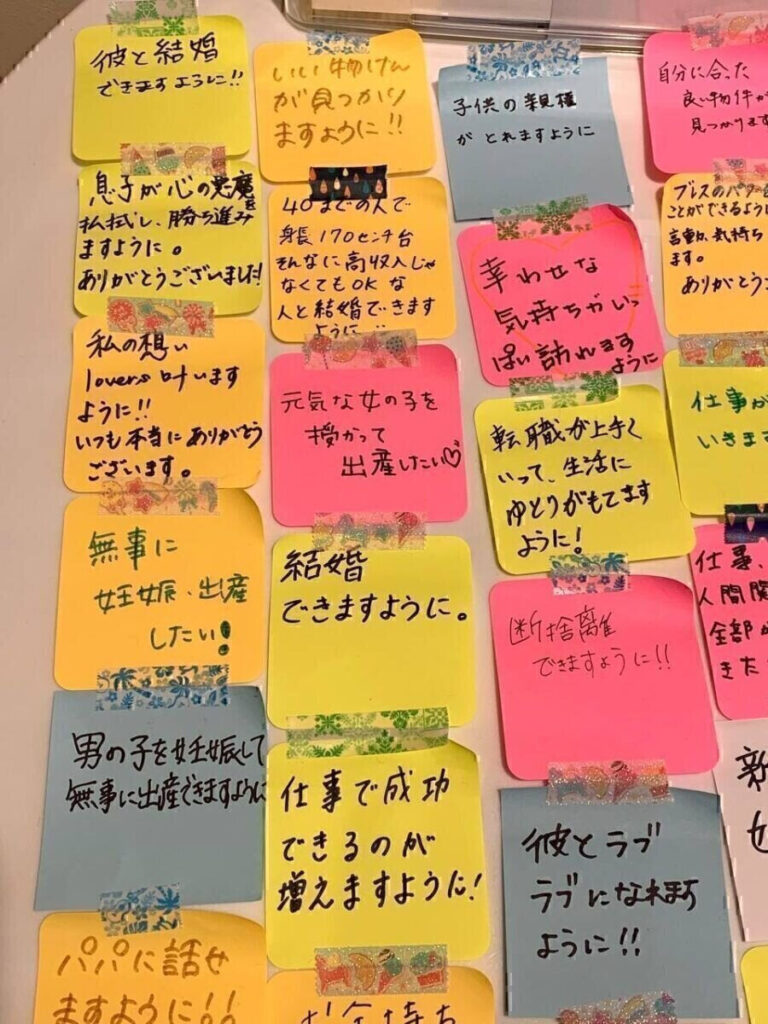 彼と結婚
できますように!!
息子が心の悪魔を
払拭し、勝ち進み
ますように。
ありがとうございました!
私の想い
lovers叶います
ように!!
いつも本当にありがとう
ございます。
無事に
妊娠、出産
したい!
男の子を妊娠して
無事に出産できますように
パパに話せ
ますように!!
いい物けん
が見つかり
ますように!!
40までの人で
身長170センチ台
そんなに高収入じゃ
なくてもOKな
人と結婚できます
ように
元気な女の子を
授かって
出産したい♡
結婚
できますように。
仕事で成功
できるのが
増えますように!
お金持ち
子供の親権
がとれますように
幸わせな
気持ちがいっ
ぱい訪れます
ように
転職が上手く
いって、生活に
ゆとりがもてます
ように!
断捨離
できますように!!
彼とラブ
ラブになれます
ように!!
自分に合った
良い物件が
見つかります
ブレスのパワー
ことができるように
言動、気持ち
ます。
ありがとう
仕事が
いきます
仕事、
人間関
全部が
きた
新